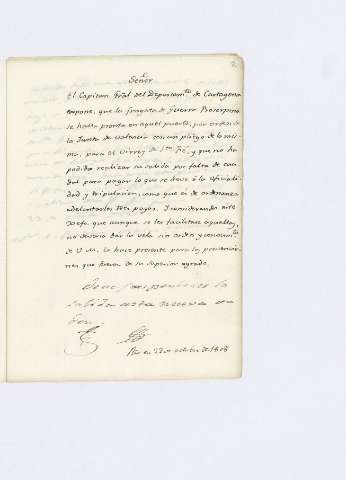 2
Señor
El Capitan Gral. del Departamto. de Cartagena
expone, que la fragata de Guerra Proserpina
se halla pronta en aquel puerto, por orden de
la Junta de Valencia con un pliego de la mis-
ma, para el Virrey de Sta. Fé, y que no ha
podido realizar su salida por falta de cau-
dal para pagar lo que se deve á la oficiali-
dad y tripulacion, como que es de ordenanza
adelantarles tres pagas. Considerando este
Xefe que aunque se les facilitase aquella,
no deveria dar la vela sin orden y conocimto.
de V.M. lo hace presente para las providencias
que fueren de su superior agrado.
salida asta nueva or
den
en 22 octubre de 1808